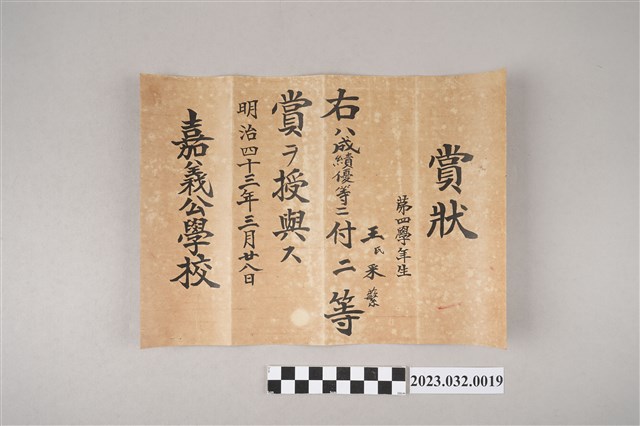 賞狀
第四學年生
王氏采蘩
右ハ成績優等ニ付二等
賞ヲ授與ス
明治四十三年三月廿八日
嘉義公學校
2023.032.0019